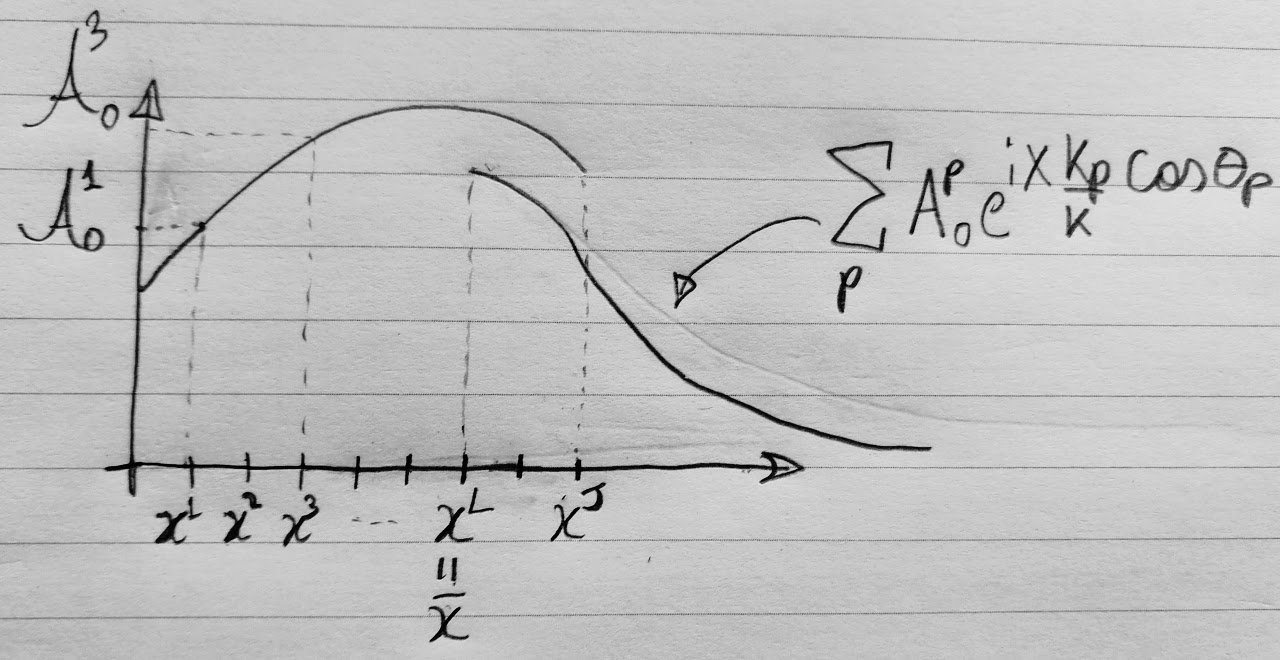 A₀³
A₀¹
∑ₚ A₀ᵖ e^{iX (Kₚ/K) Cosθₚ}
x¹ x² x³ --- xᴸ xᴶ
=
x̄